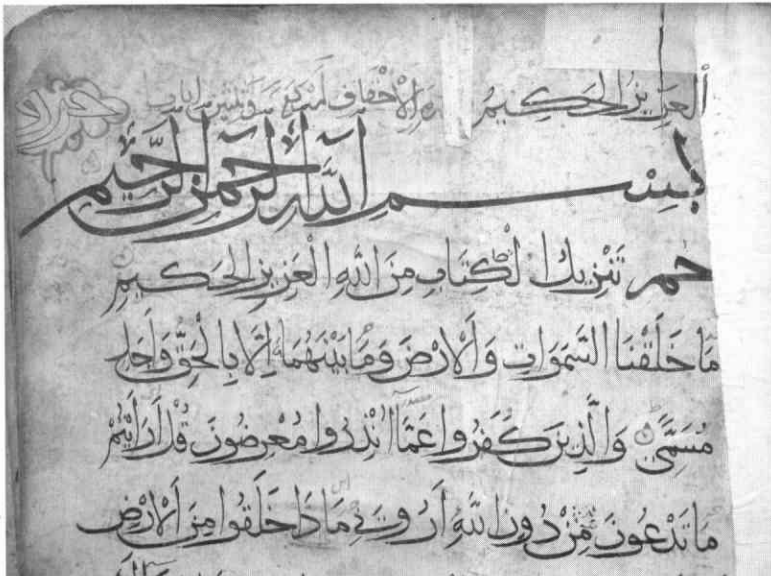 اَلْعَزِيزُ الْحَكِيمُ الاحقاف اربع وثلثين ايات
بِسْمِ اللَّهِ الرَّحْمٰنِ الرَّحِيمِ
حم تَنْزِيلُ الْكِتَابِ مِنَ اللَّهِ الْعَزِيزِ الْحَكِيمِ
مَا خَلَقْنَا السَّمَوَاتِ وَالْاَرْضَ وَمَا بَيْنَهُمَا اِلَّا بِالْحَقِّ وَاَجَلٍ
مُسَمًّى وَالَّذِينَ كَفَرُوا عَمَّا اُنْذِرُوا مُعْرِضُونَ قُلْ اَرَاَيْتُمْ
مَا تَدْعُونَ مِنْ دُونِ اللَّهِ اَرُونِي مَاذَا خَلَقُوا مِنَ الْاَرْضِ